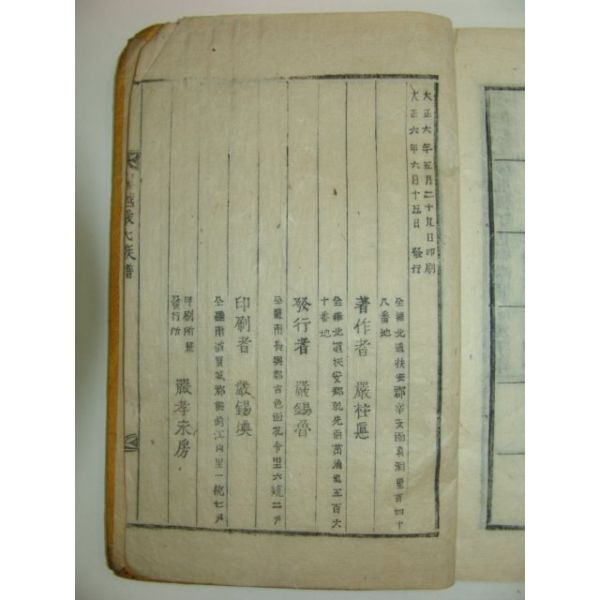 大正六年五月二十九日印刷
大正六年六月十五日 發行
全羅北道扶安郡辛安面 里百四十
八番地
著作者 嚴柱
全羅北道扶安郡乾先面萬 五百六
十番地
發行者 嚴錫魯
全羅南道長興郡古邑面 里六統二戶
印刷者 嚴錫
全羅南道寶城郡 內里一統七戶
印刷所兼
發行所
嚴孝友房
越嚴氏族譜